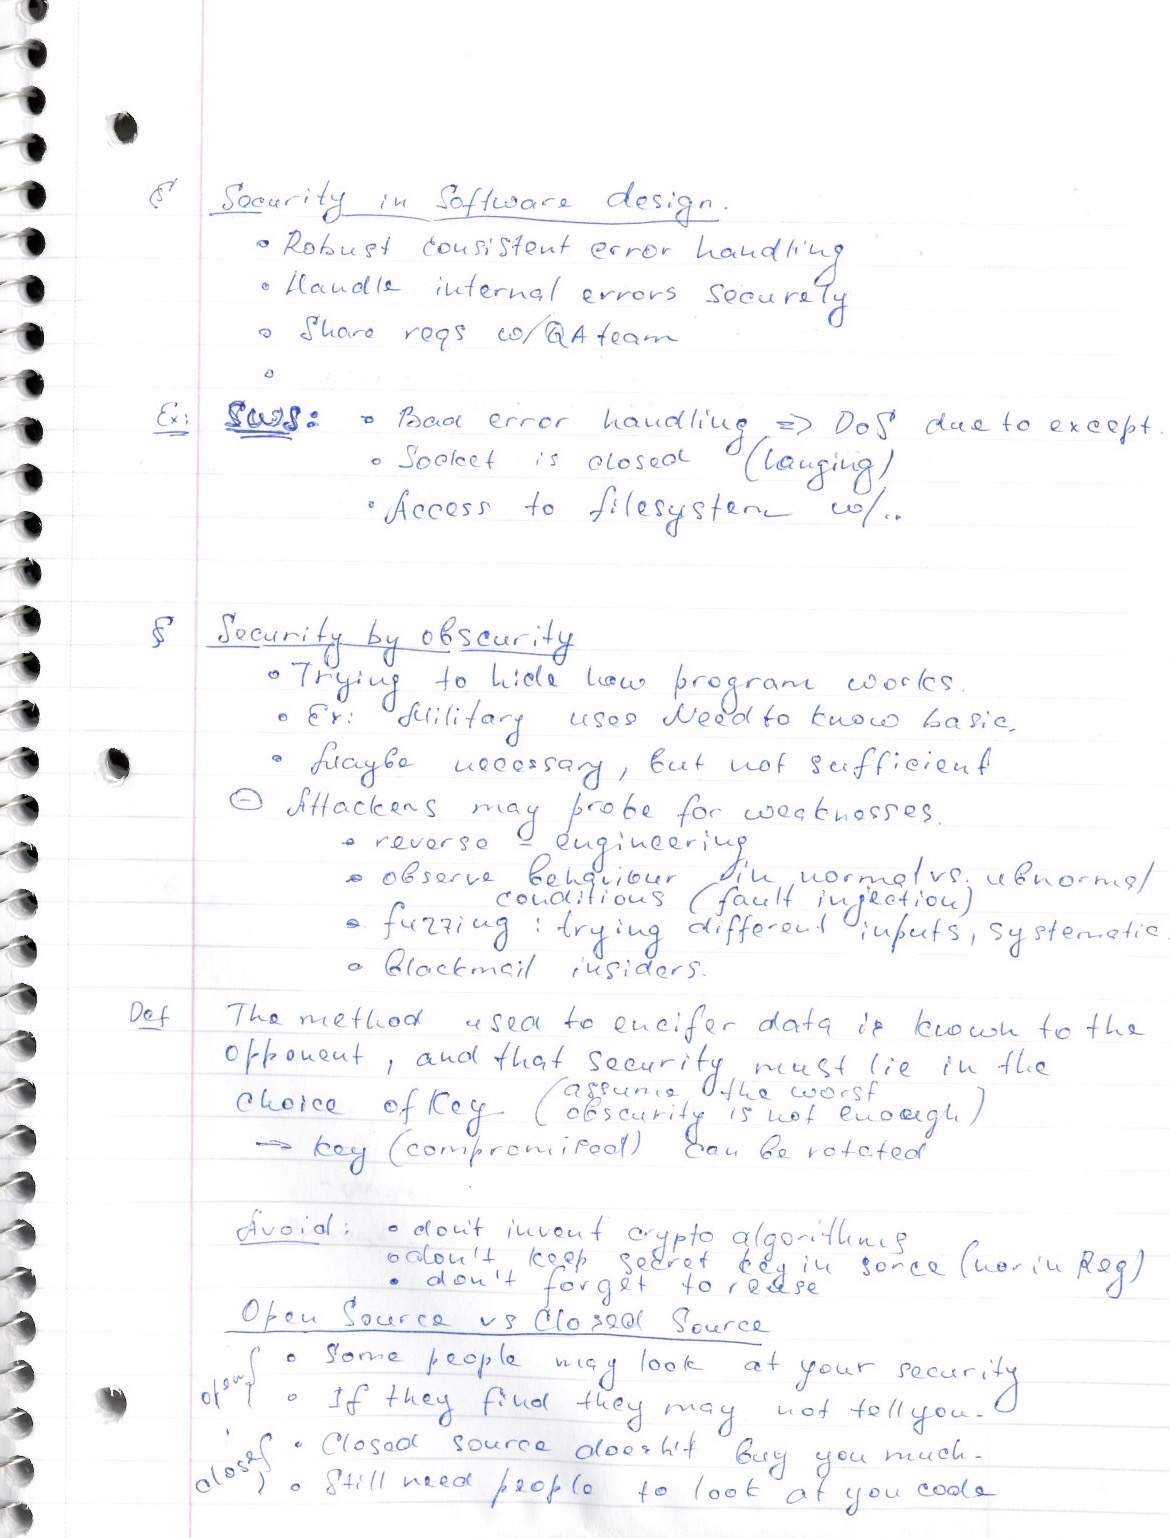 § Security in Software design.
• Robust consistent error handling
• Handle internal errors securely
• Share reqs w/QA team
•
Ex: SWS: • Bad error handling => DoS due to except.
• Socket is closed (hanging)
• Access to filesystem w/..
§ Security by obscurity
• Trying to hide how program works.
• Ex: Military uses Need to know basic.
• Maybe necessary, but not sufficient
⊖ Attackers may probe for weaknesses.
• reverse - engineering
• observe behaviour in normal vs. abnormal
conditions (fault injection)
• fuzzing : trying different inputs, systematic.
• Blackmail insiders.
Def The method used to encifer data is known to the
opponent, and that security must lie in the
choice of Key (assume the worst
obscurity is not enough)
→ key (compromised) can be rotated
Avoid: • don't invent crypto algorithms
• don't keep secret key in sorce (nor in Reg)
• don't forget to reuse
Open Source vs Closed Source
open { • Some people may look at your security
• If they find they may not tell you.
closed { • Closed source doesn't buy you much.
• Still need people to look at you code